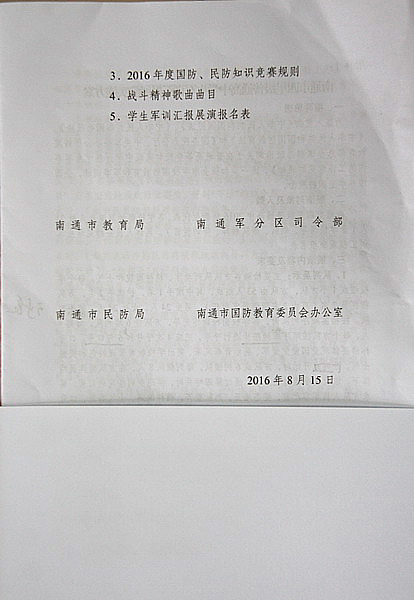 3．2016 年度国防、民防知识竞赛规则
4．战斗精神歌曲曲目
5．学生军训汇报展演报名表
南通市教育局 南通军分区司令部
南通市民防局 南通市国防教育委员会办公室
2016 年 8 月 15 日